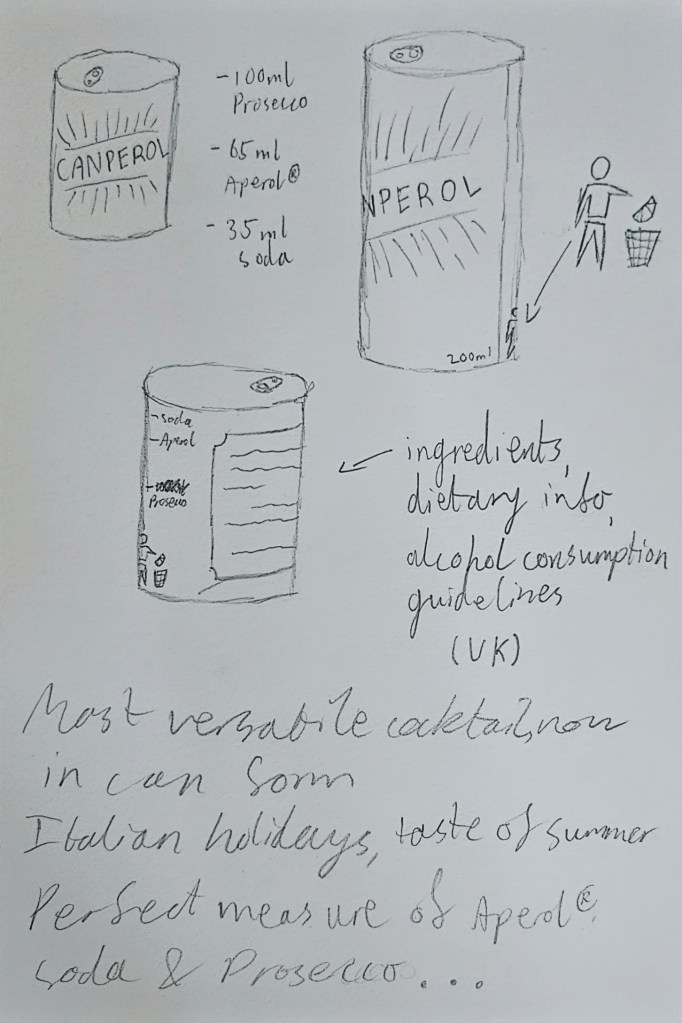 CANPEROL
- 100ml
Prosecco
- 65ml
Aperol®
- 35ml
soda
NPEROL
200ml
- soda
- Aperol
- Prosecco
ingredients,
dietary info,
alcohol consumption
guidelines
(UK)
Most versatile cocktail, now
in can form
Italian holidays, taste of summer
Perfect measure of Aperol®,
soda & Prosecco...